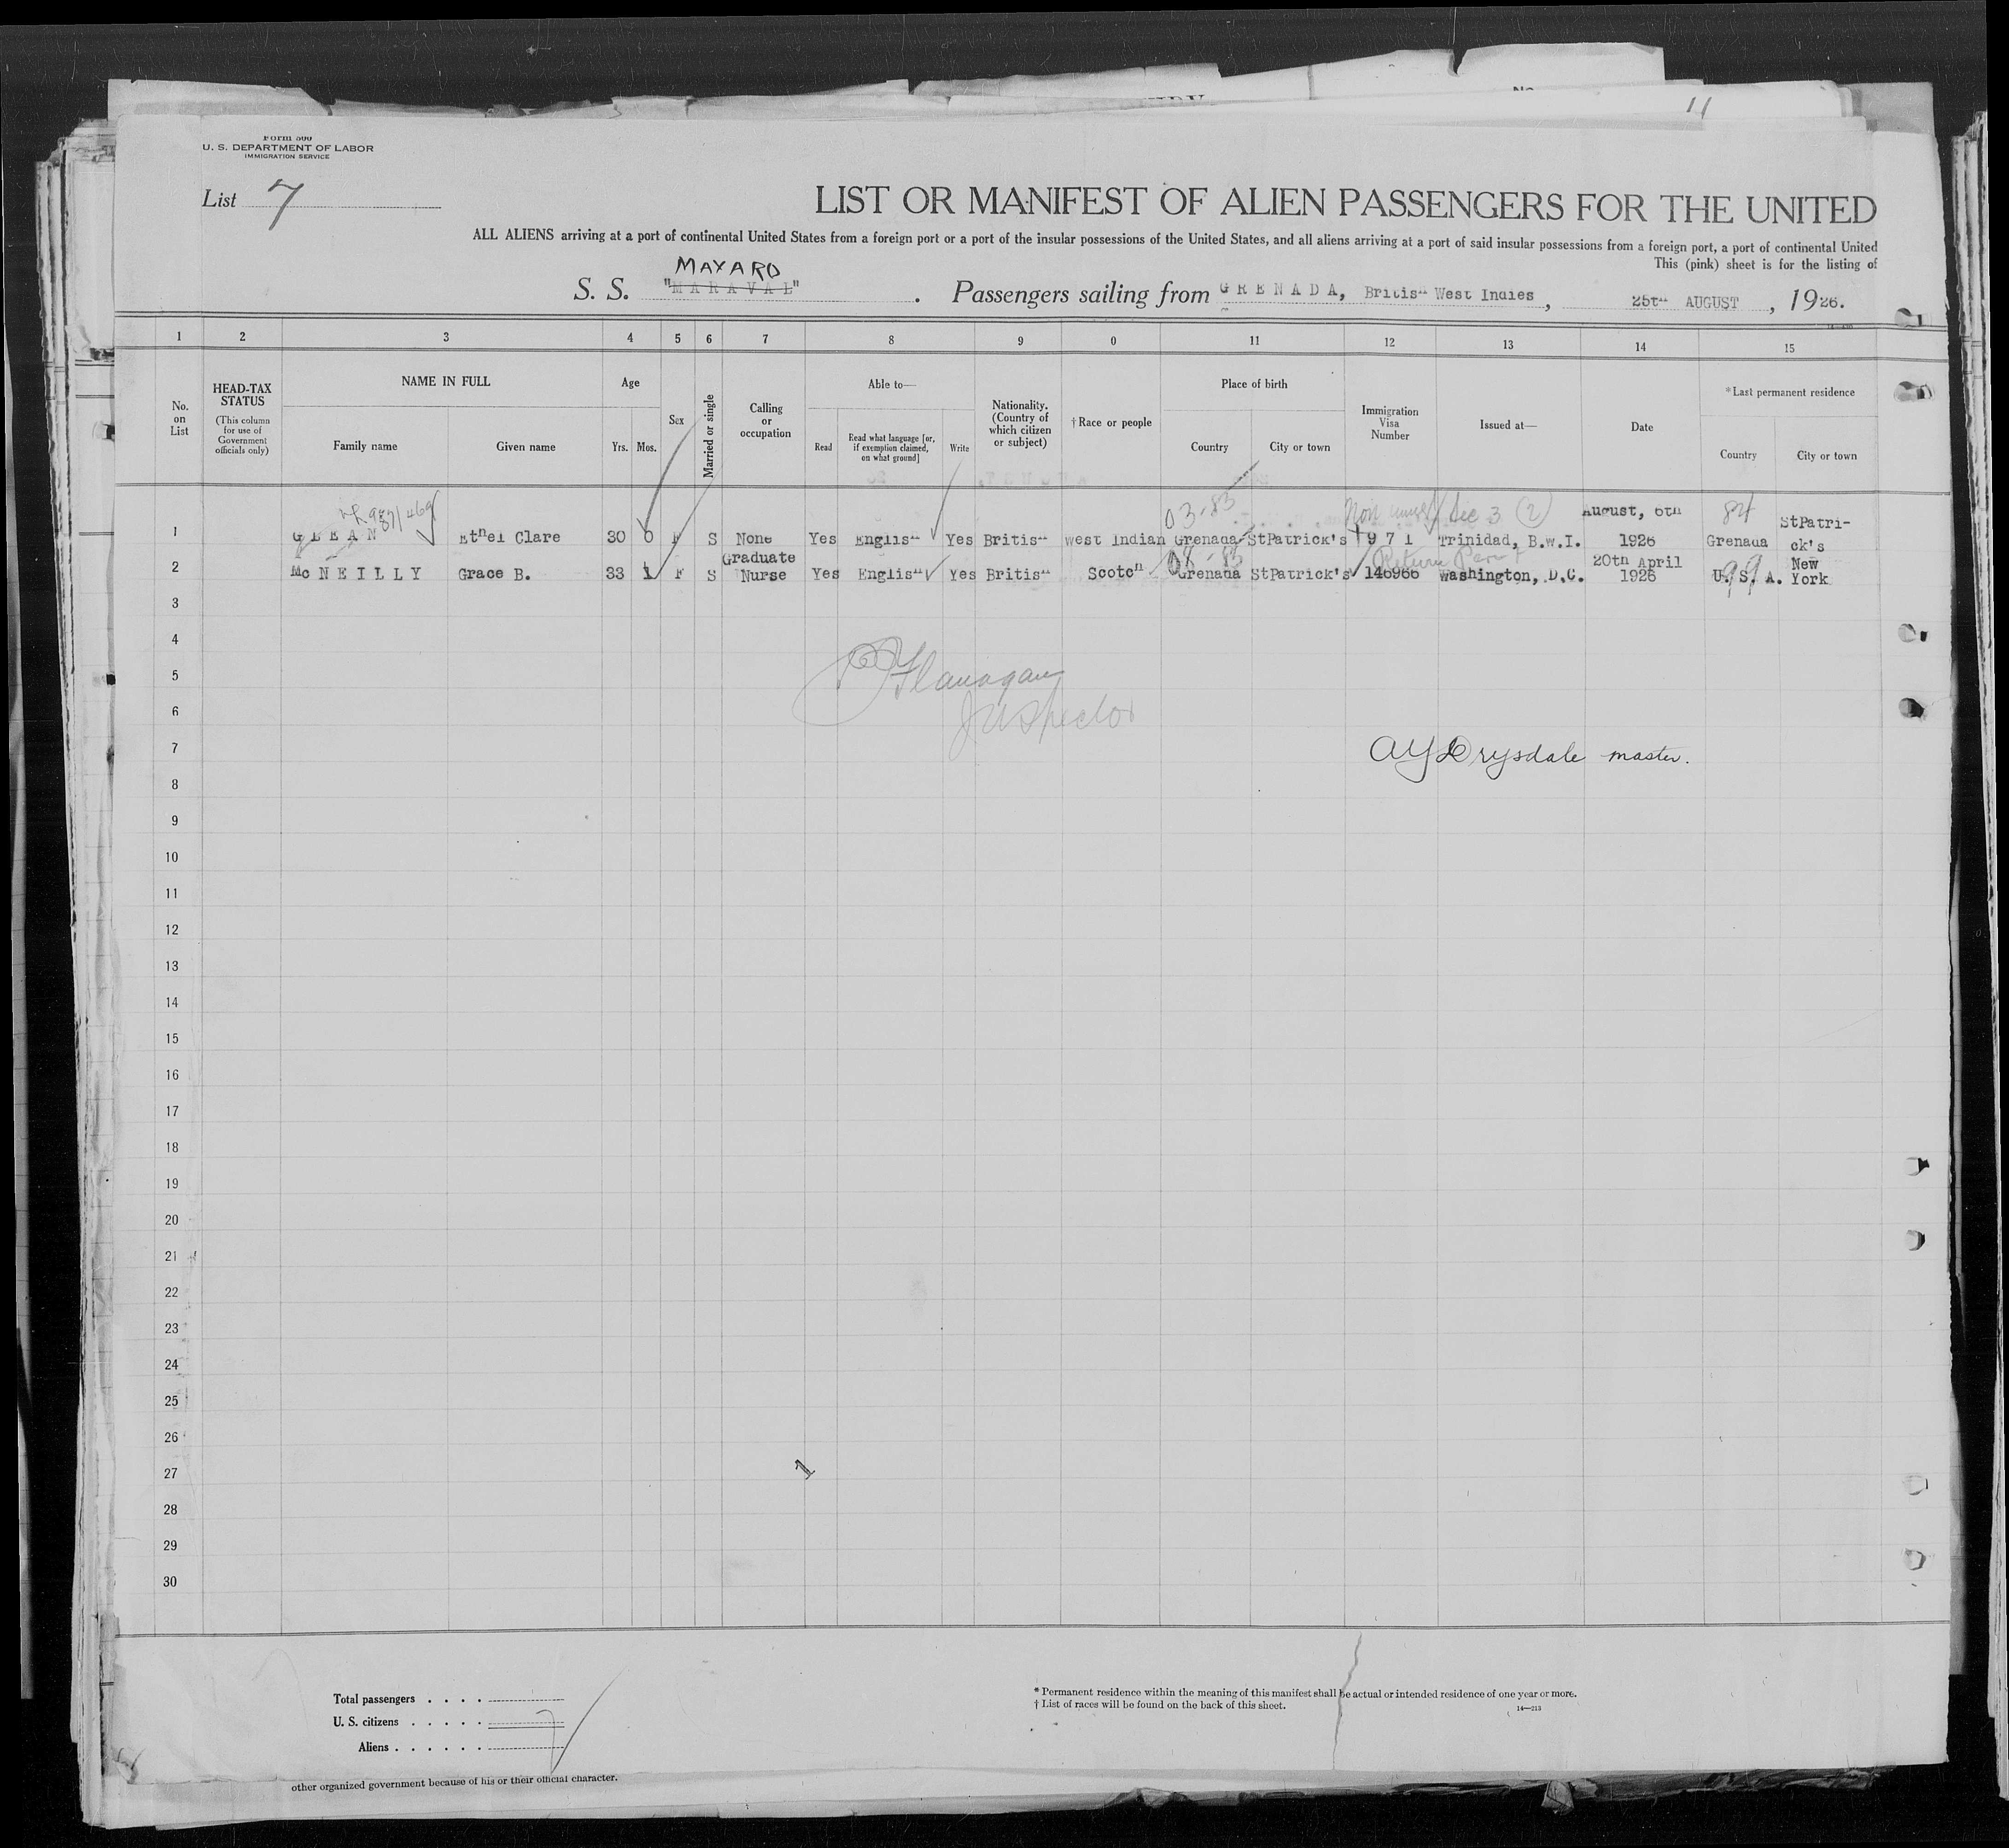 11
Form 500
U. S. DEPARTMENT OF LABOR
IMMIGRATION SERVICE
List 7
LIST OR MANIFEST OF ALIEN PASSENGERS FOR THE UNITED
ALL ALIENS arriving at a port of continental United States from a foreign port or a port of the insular possessions of the United States, and all aliens arriving at a port of said insular possessions from a foreign port, a port of continental United
This (pink) sheet is for the listing of
MAYARO
S. S. "MARAVAL" . Passengers sailing from GRENADA, British West Indies, 25th AUGUST, 1926.
1 2 3 4 5 6 7 8 9 0 11 12 13 14 15
No. on List
HEAD-TAX STATUS
(This column for use of Government officials only)
NAME IN FULL
Family name Given name
Age
Yrs. Mos.
Sex
Married or single
Calling or occupation
Able to—
Read
Read what language [or, if exemption claimed, on what ground]
Write
Nationality. (Country of which citizen or subject)
† Race or people
Place of birth
Country City or town
Immigration Visa Number
Issued at—
Date
* Last permanent residence
Country City or town
03-83 Sec 3 (2) 84
1 GLEAN Ethel Clare 30 6 F S None Yes English Yes British West Indian Grenada StPatrick's 971 Trinidad, B.W.I. August, 6th 1926 Grenada StPatri-ck's
08-83 Return Permit 99
2 McNEILLY Grace B. 33 1 F S Graduate Nurse Yes English Yes British Scotch Grenada StPatrick's 146966 Washington, D.C. 20th April 1926 U. S. A. New York
3
4
5
Flanagan
6
Inspector
7
AY Drysdale master.
8
9
10
11
12
13
14
15
16
17
18
19
20
21
22
23
24
25
26
27
28
29
30
Total passengers . . . .
U. S. citizens . . . . .
Aliens . . . . . .
* Permanent residence within the meaning of this manifest shall be actual or intended residence of one year or more.
† List of races will be found on the back of this sheet.
14—213
other organized government because of his or their official character.